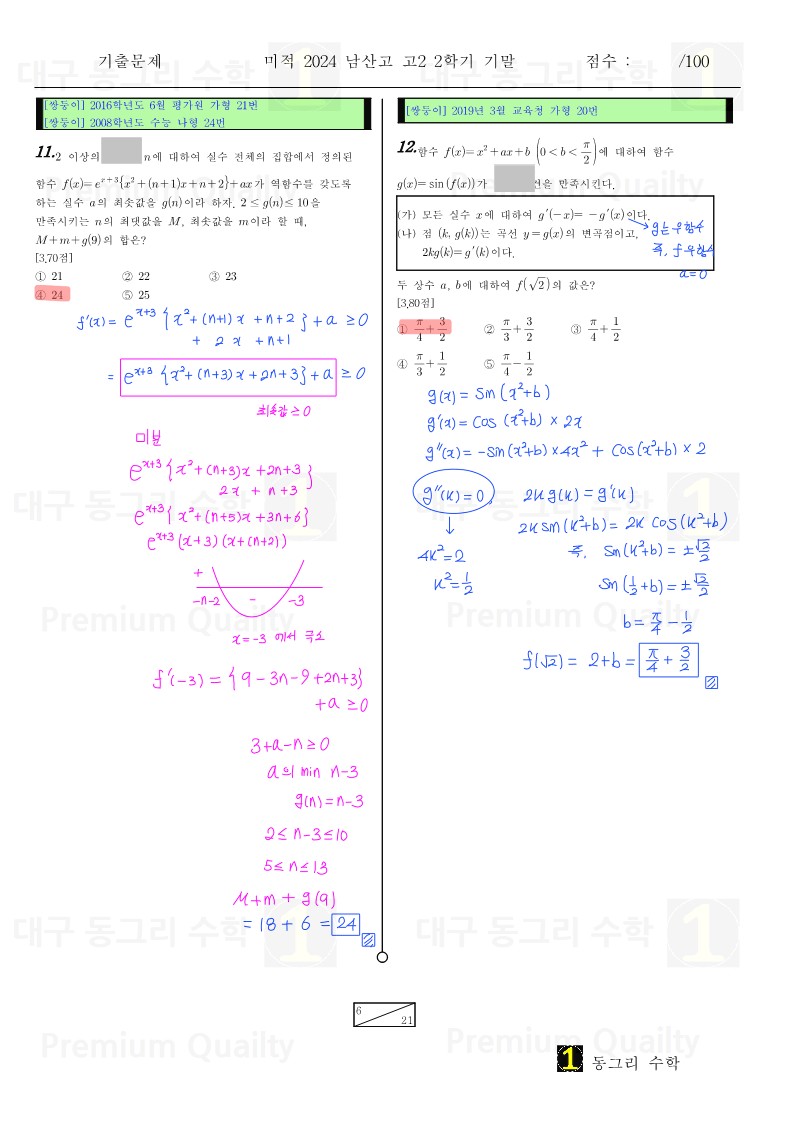 기출문제 미적 2024 남산고 고2 2학기 기말 점수 : /100
[쌍둥이] 2016학년도 6월 평가원 가형 21번
[쌍둥이] 2008학년도 수능 나형 24번
11. 2 이상의 n에 대하여 실수 전체의 집합에서 정의된
함수 f(x)=e^{x+3}{x²+(n+1)x+n+2}+ax가 역함수를 갖도록
하는 실수 a의 최솟값을 g(n)이라 하자. 2≤g(n)≤10을
만족시키는 n의 최댓값을 M, 최솟값을 m이라 할 때,
M+m+g(9)의 합은?
[3.70점]
① 21 ② 22 ③ 23
④ 24 ⑤ 25
f'(x) = e^{x+3} {x²+(n+1)x+n+2} + a ≥ 0
+ 2x + n+1
= e^{x+3} {x²+(n+3)x+2n+3} + a ≥ 0
최솟값 ≥ 0
미분
e^{x+3} {x²+(n+3)x+2n+3}
2x + n+3
e^{x+3} {x²+(n+5)x+3n+6}
e^{x+3} (x+3)(x+(n+2))
+
-n-2 - -3
x=-3 에서 극소
f'(-3) = {9-3n-9+2n+3}
+a ≥ 0
3+a-n ≥ 0
a의 min n-3
g(n)=n-3
2≤ n-3 ≤10
5≤ n ≤ 13
M+m + g(9)
= 18 + 6 = 24
[쌍둥이] 2019년 3월 교육청 가형 20번
12. 함수 f(x)=x²+ax+b (0<b<π/2)에 대하여 함수
g(x)=sin(f(x))가 건을 만족시킨다.
(가) 모든 실수 x에 대하여 g'(-x)=-g'(x)이다.
(나) 점 (k, g(k))는 곡선 y=g(x)의 변곡점이고,
2kg(k)=g'(k)이다.
g는 우함수
즉, f 우함수
a=0
두 상수 a, b에 대하여 f(√2)의 값은?
[3.80점]
① π/4+3/2 ② π/3+3/2 ③ π/4+1/2
④ π/3+1/2 ⑤ π/4-1/2
g(x) = sin(x²+b)
g'(x) = cos(x²+b) × 2x
g''(x) = -sin(x²+b)×4x² + cos(x²+b) × 2
g''(k)=0, 2k g(k) = g'(k)
2k sin(k²+b) = 2k cos(k²+b)
4k²=2
즉, sin(k²+b) = ±√2/2
k²=1/2
sin(1/2+b) = ±√2/2
b = π/4 - 1/2
f(√2) = 2+b = π/4 + 3/2
6
21
1 동그리 수학
대구 동그리 수학 1
Premium Quailty
대구 동그리 수학 1
Premium Quailty
대구 동그리 수학 1
Premium Quailty
대구 동그리 수학 1
Premium Quailty
대구 동그리 수학 1
Premium Quailty
대구 동그리 수학 1
Premium Quailty